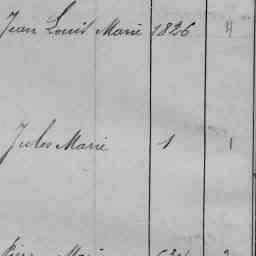 Jean Louis Marie 1826 4
Jules Marie 1 1
Marie